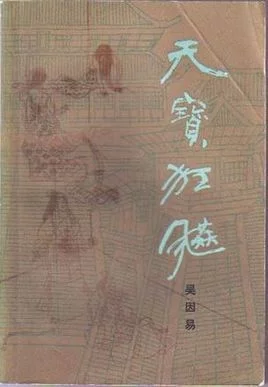 天寶狂飚
吴因易